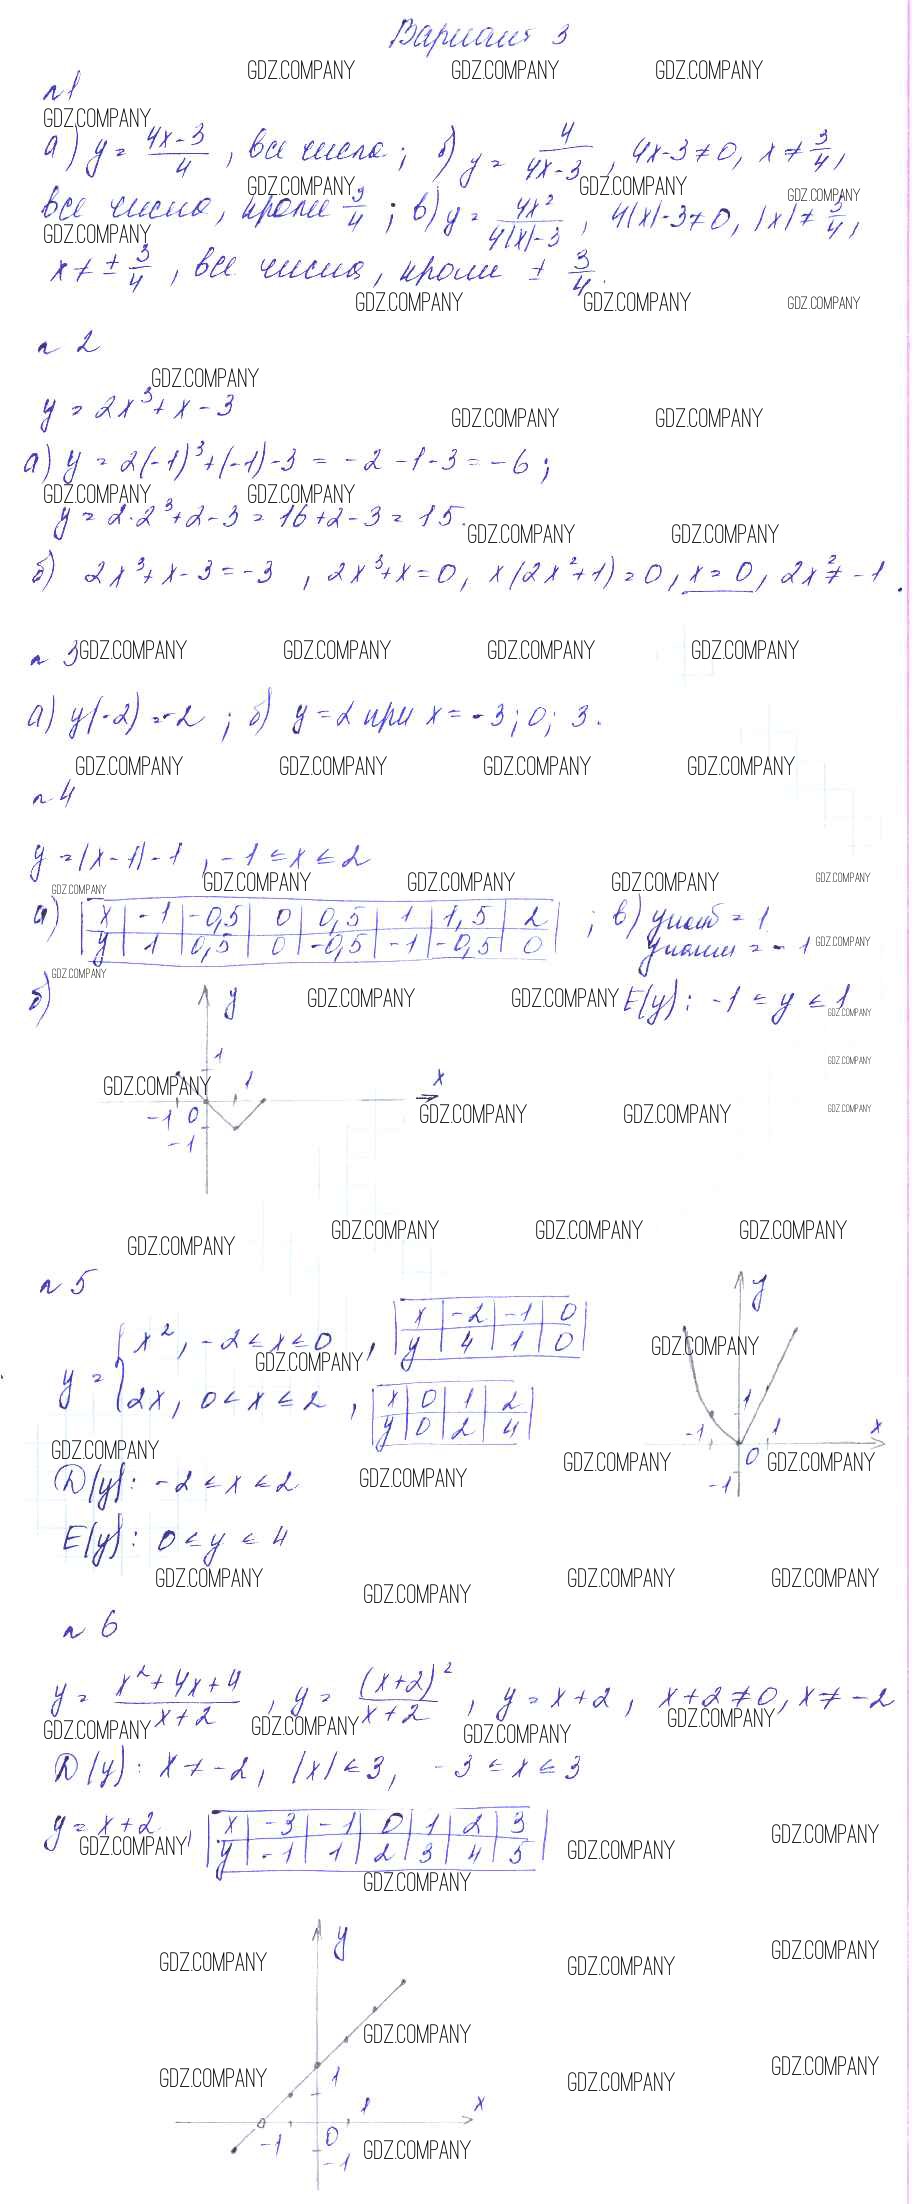 Вариант 3
GDZ.COMPANY GDZ.COMPANY GDZ.COMPANY
n 1
GDZ.COMPANY
а) y = (4x-3)/4 , все числа; б) y = 4/(4x-3) , 4x-3≠0, x≠3/4,
GDZ.COMPANY GDZ.COMPANY GDZ.COMPANY
все числа, кроме 3/4 ; в) y = 4x²/(4|x|-3) , 4|x|-3≠0, |x|≠3/4,
GDZ.COMPANY
x≠±3/4 , все числа, кроме ± 3/4.
GDZ.COMPANY GDZ.COMPANY GDZ.COMPANY
n 2
GDZ.COMPANY
y = 2x³+x-3
GDZ.COMPANY GDZ.COMPANY
а) y = 2(-1)³+(-1)-3 = -2-1-3=-6;
GDZ.COMPANY GDZ.COMPANY
y = 2·2³+2-3=16+2-3=15.
GDZ.COMPANY GDZ.COMPANY
б) 2x³+x-3=-3 , 2x³+x=0, x(2x²+1)=0, x=0, 2x²≠-1.
n 3 GDZ.COMPANY GDZ.COMPANY GDZ.COMPANY GDZ.COMPANY
а) y(-2)=-2 ; б) y=2 при x=-3; 0; 3.
GDZ.COMPANY GDZ.COMPANY GDZ.COMPANY GDZ.COMPANY
n 4
y=|x-1|-1 , -1≤x≤2
GDZ.COMPANY GDZ.COMPANY GDZ.COMPANY GDZ.COMPANY GDZ.COMPANY
а) x | -1 | -0,5 | 0 | 0,5 | 1 | 1,5 | 2 ; в) yнаиб = 1
y | 1 | 0,5 | 0 | -0,5 | -1 | -0,5 | 0 yнаим = -1 GDZ.COMPANY
GDZ.COMPANY
б) y GDZ.COMPANY GDZ.COMPANY E(y): -1≤y≤1
GDZ.COMPANY
1
GDZ.COMPANY
GDZ.COMPANY 1 x
-1 0 GDZ.COMPANY GDZ.COMPANY GDZ.COMPANY
-1
GDZ.COMPANY GDZ.COMPANY GDZ.COMPANY GDZ.COMPANY
n 5
y = { x², -2≤x≤0 , x | -2 | -1 | 0
y | 4 | 1 | 0
GDZ.COMPANY GDZ.COMPANY
2x, 0<x≤2 , x | 0 | 1 | 2
y | 0 | 2 | 4
y
1
-1 1 x
0
-1
GDZ.COMPANY GDZ.COMPANY GDZ.COMPANY GDZ.COMPANY
D(y): -2≤x≤2
E(y): 0≤y≤4
GDZ.COMPANY GDZ.COMPANY GDZ.COMPANY GDZ.COMPANY
n 6
y = (x²+4x+4)/(x+2) , y = (x+2)²/(x+2) , y=x+2, x+2≠0, x≠-2
GDZ.COMPANY GDZ.COMPANY GDZ.COMPANY GDZ.COMPANY
D(y): x≠-2, |x|≤3, -3≤x≤3
y=x+2 , x | -3 | -1 | 0 | 1 | 2 | 3
y | -1 | 1 | 2 | 3 | 4 | 5
GDZ.COMPANY GDZ.COMPANY GDZ.COMPANY
GDZ.COMPANY
y
GDZ.COMPANY GDZ.COMPANY GDZ.COMPANY
GDZ.COMPANY
GDZ.COMPANY 1 GDZ.COMPANY GDZ.COMPANY
1 x
-1 0
-1 GDZ.COMPANY